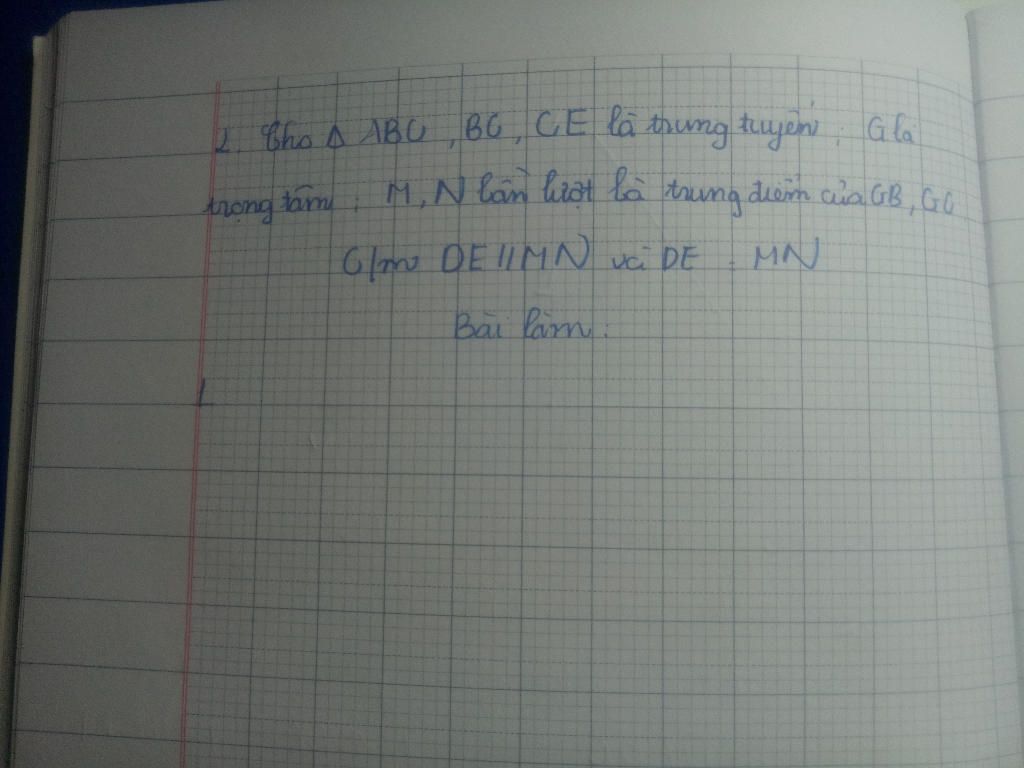 2. Cho Δ ABC, BC, CE là trung tuyến; G là
trọng tâm; M, N lần lượt là trung điểm của GB, GC
C/m DE // MN và DE = MN
Bài làm: